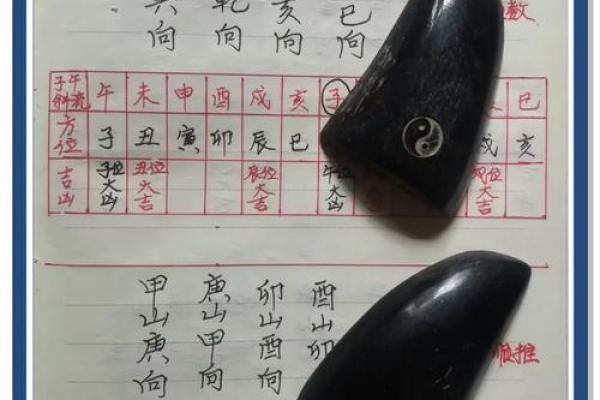 向 乾向 亥向 巳向
数
子午 午 未 申 酉 戌 亥 子 巳
方位 子 丑 寅 卯 辰 巳 戌 亥
吉凶 子位大凶 丑位大吉 辰位大吉 午位大凶 戌位大吉
甲山庚向
庚山甲向
卯山酉向
酉山卯
顺推